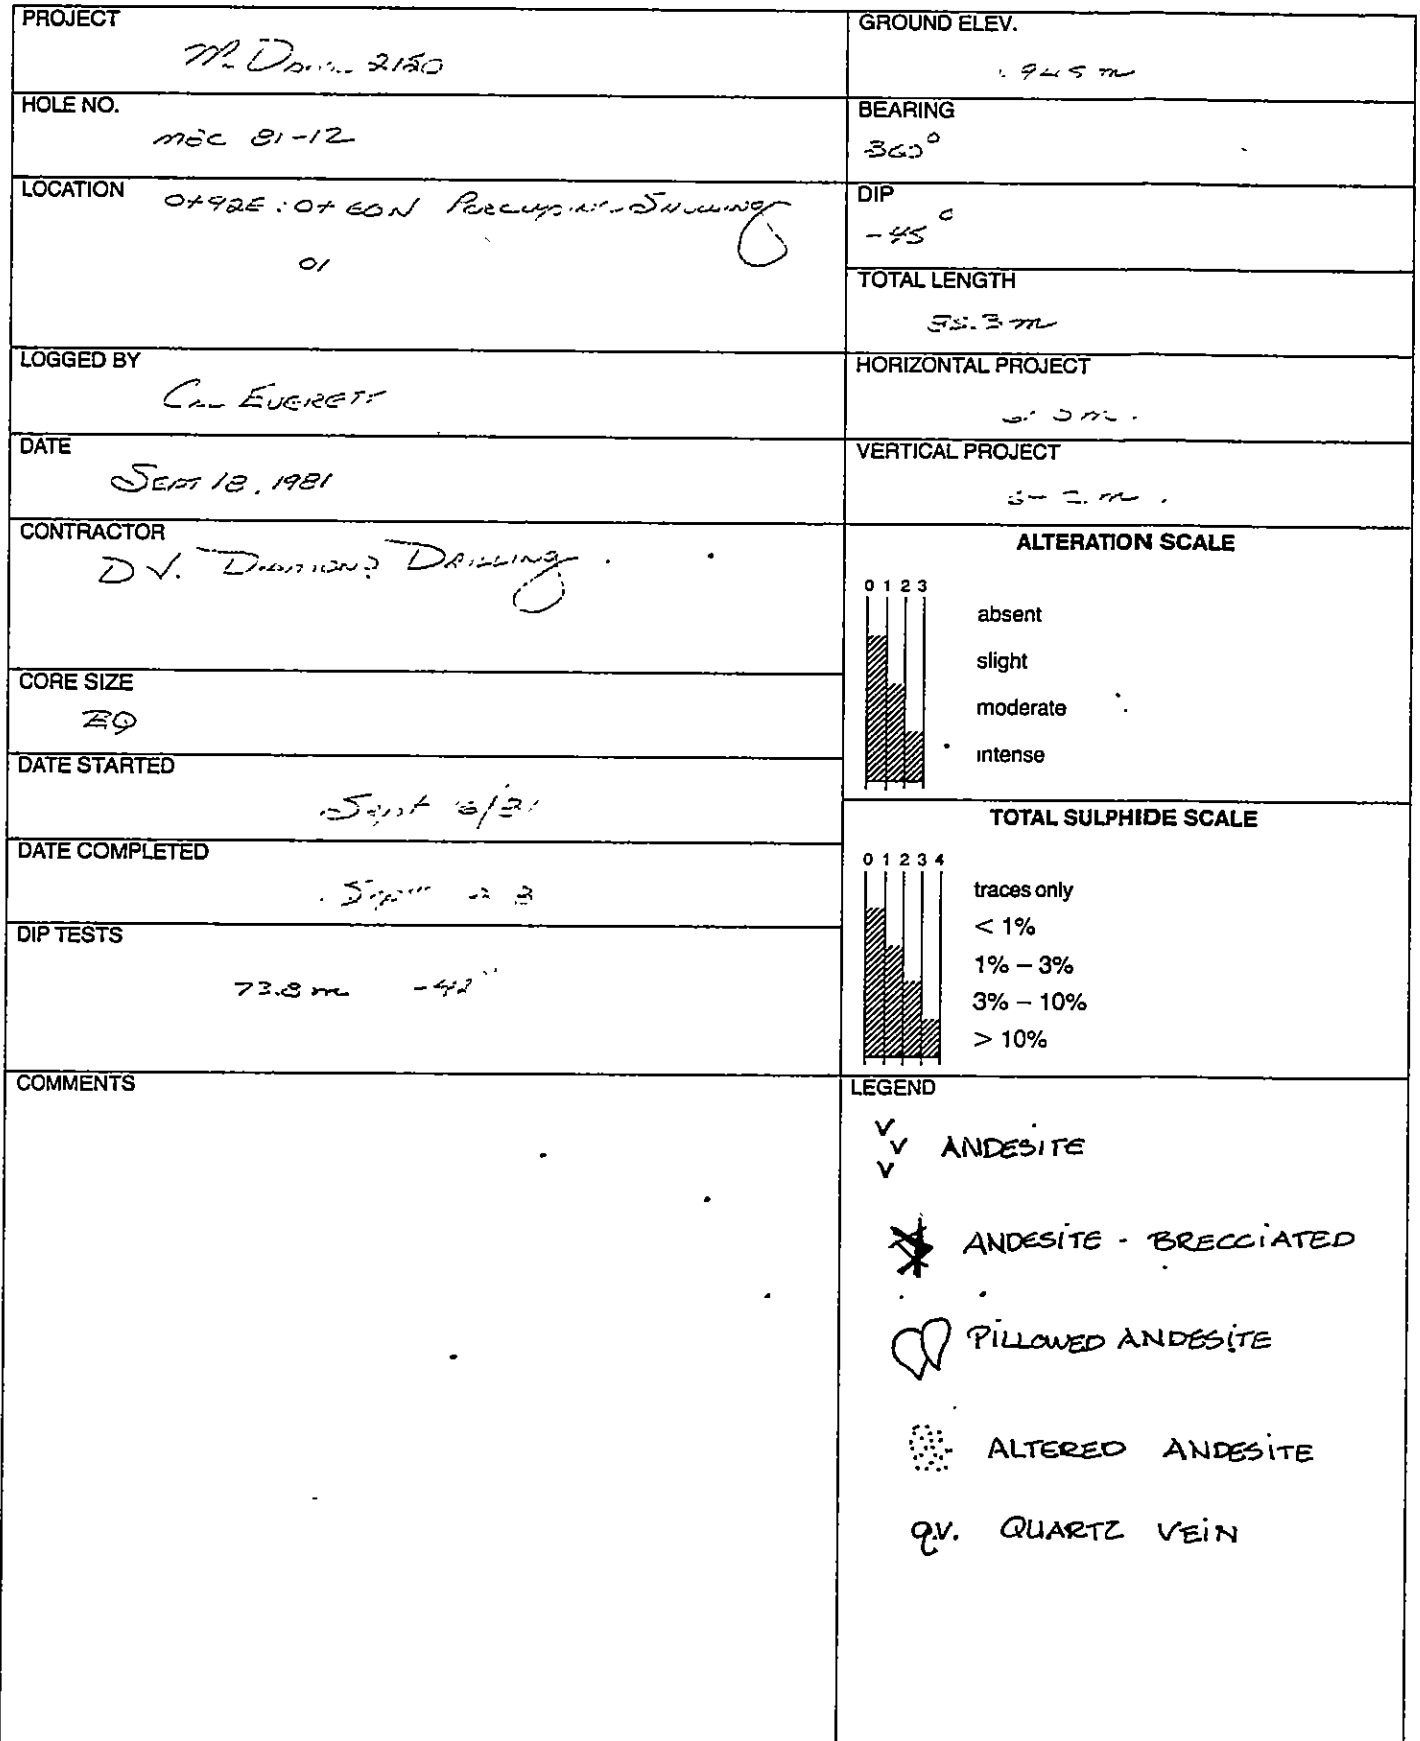 PROJECT
2150
HOLE NO.
81-12
LOCATION 0+92E : 0+60N
01
LOGGED BY
EVERETT
DATE
SEPT 18, 1981
CONTRACTOR
D.V. DRILLING.
CORE SIZE
DATE STARTED
Sept
DATE COMPLETED
DIP TESTS
73.8 m -42°
COMMENTS
GROUND ELEV.
945 m
BEARING
360°
DIP
-45°
TOTAL LENGTH
HORIZONTAL PROJECT
VERTICAL PROJECT
ALTERATION SCALE
0 1 2 3
absent
slight
moderate
intense
TOTAL SULPHIDE SCALE
0 1 2 3 4
traces only
< 1%
1% – 3%
3% – 10%
> 10%
LEGEND
v v v ANDESITE
ANDESITE - BRECCIATED
PILLOWED ANDESITE
ALTERED ANDESITE
q.v. QUARTZ VEIN